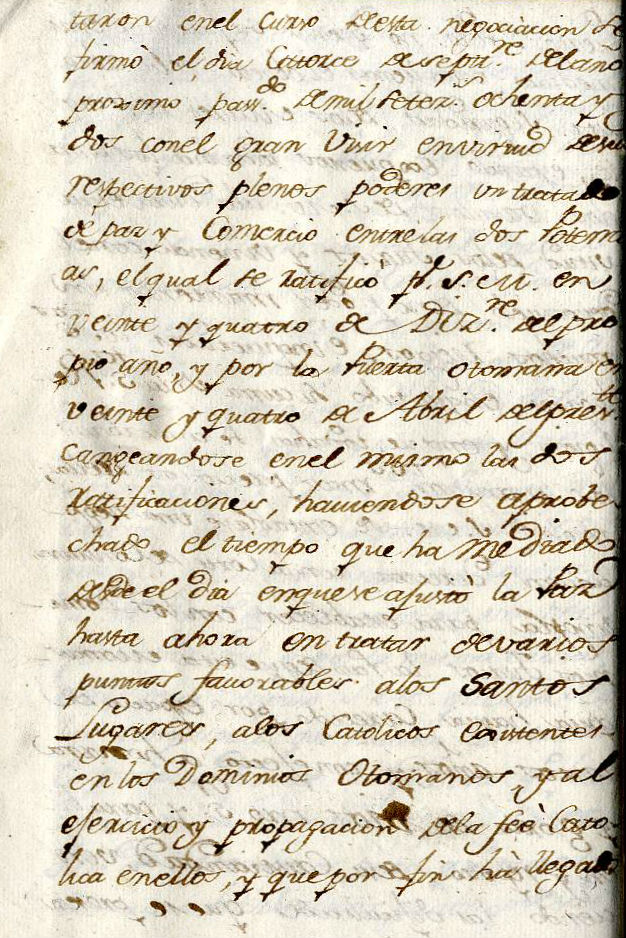 taron enel curso de esta negociacion se
firmò el dia Catorce de Septre. del año
proximo passdo. de mil setezs. ochenta y
dos con el gran Visir en virtud de sus
respectivos plenos poderes un tratado
de paz y Comercio entre las dos Potenci
as, el qual se ratificò pr. S. M. en
veinte y quatro de Dizre. del pro
pio año, y por la Puerta Otomana en
veinte y quatro de Abril del presTte.
cangeandose en el mismo las dos
ratificaciones, haviendose aprobe
chado el tiempo que ha mediado
desde el dia en que se ajustò la Paz
hasta ahora en tratar de varios
puntos favorables a los Santos
Lugares, a los Catolicos existentes
en los Dominios Otomanos, y al
ejercicio y propagacion de la feè Cato-
lica en ellos, y que por fin hà llegado